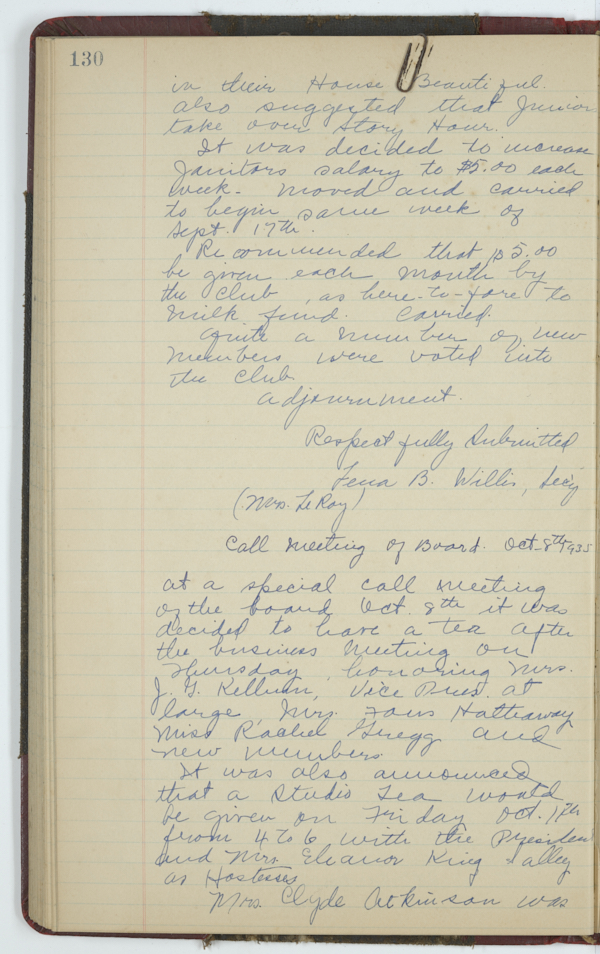 130
in their House Beautiful.
also suggested that Junior
take over Story Hour.
It was decided to increase
Janitors salary to $5.00 each
week. Moved and carried
to begin same week of
Sept. 17th.
Recommended that $5.00
be given each month by
the Club, as here-to-fore to
Milk fund. Carried.
Quite a number of new
members were voted into
the Club
adjournment.
Respectfully Submitted
Lena B. Willis, Sec'y
(Mrs. LeRoy)
Call Meeting of Board. Oct. 8th 1935
at a special call meeting
of the board Oct. 8th it was
decided to have a tea after
the business meeting on
Thursday, honoring Mrs.
J. G. Vice Pres. at
large, Mrs. Hathaway
Miss Rachel Gregg and
new members.
It was also announced
that a Studio Tea would
be given on Friday Oct. 11th
from 4 to 6 with the President
and Mrs. Eleanor King Salley
as Hostesses
Mrs. Clyde Atkinson was